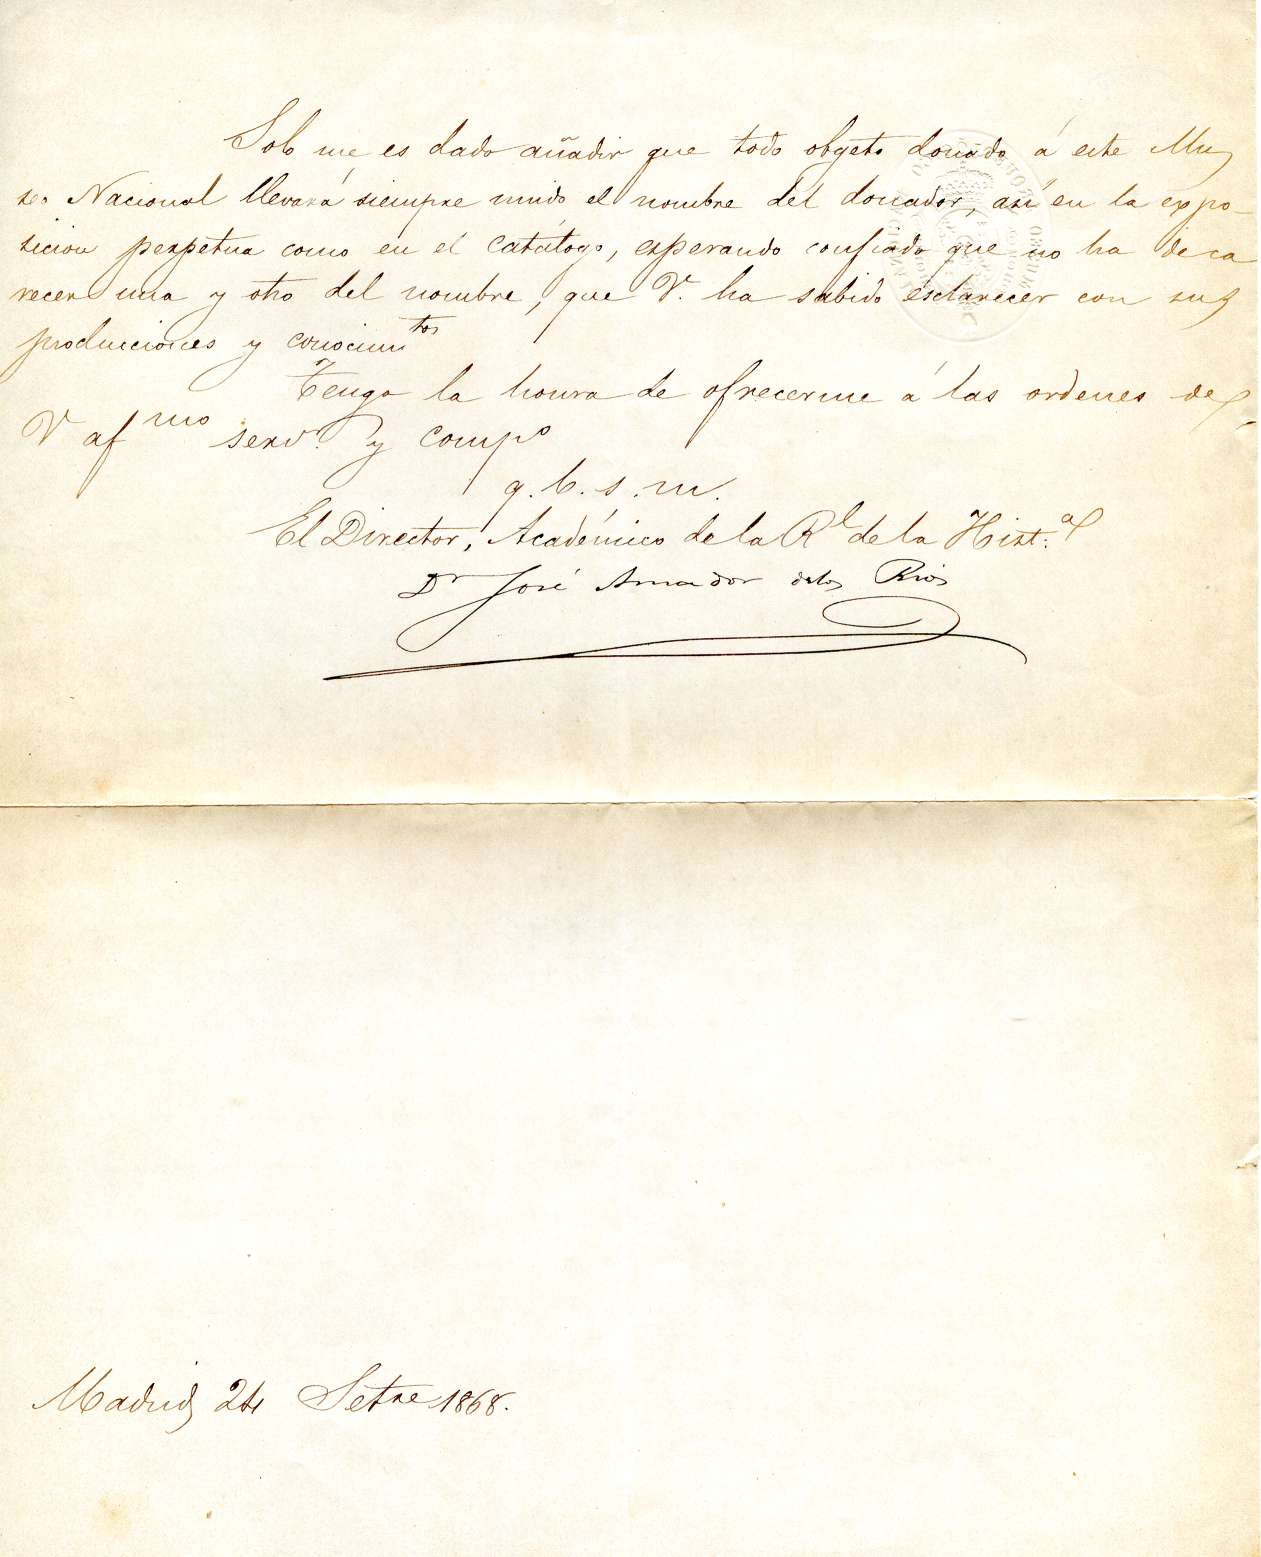 Solo me es dado añadir que todo objeto donado á este Mu
seo Nacional llevará siempre unido el nombre del donador, asi en la expo-
sicion perpetua como en el catálogo, esperando confiado que no ha de ca
recer una y otro del nombre, que V. ha sabido esclarecer con sus
producciones y conocimtos
Tengo la honra de ofrecerme á las ordenes de
V afmo servr. y compo
q. b. s. m.
El Director, Académico de la Rl de la Hist:a
Dr José Amador delos Rios
Madrid 24 Setre 1868.